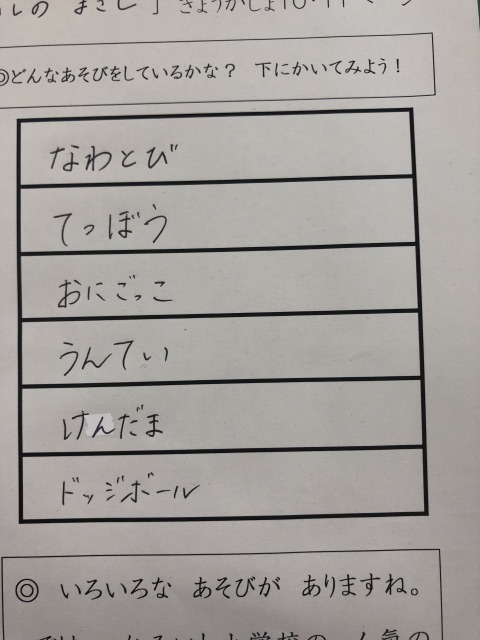 きょうかしょ10・11ページ
◎どんなあそびをしているかな？ 下にかいてみよう！
なわとび
てつぼう
おにごっこ
うんてい
けんだま
ドッジボール
◎ いろいろな あそびが ありますね。